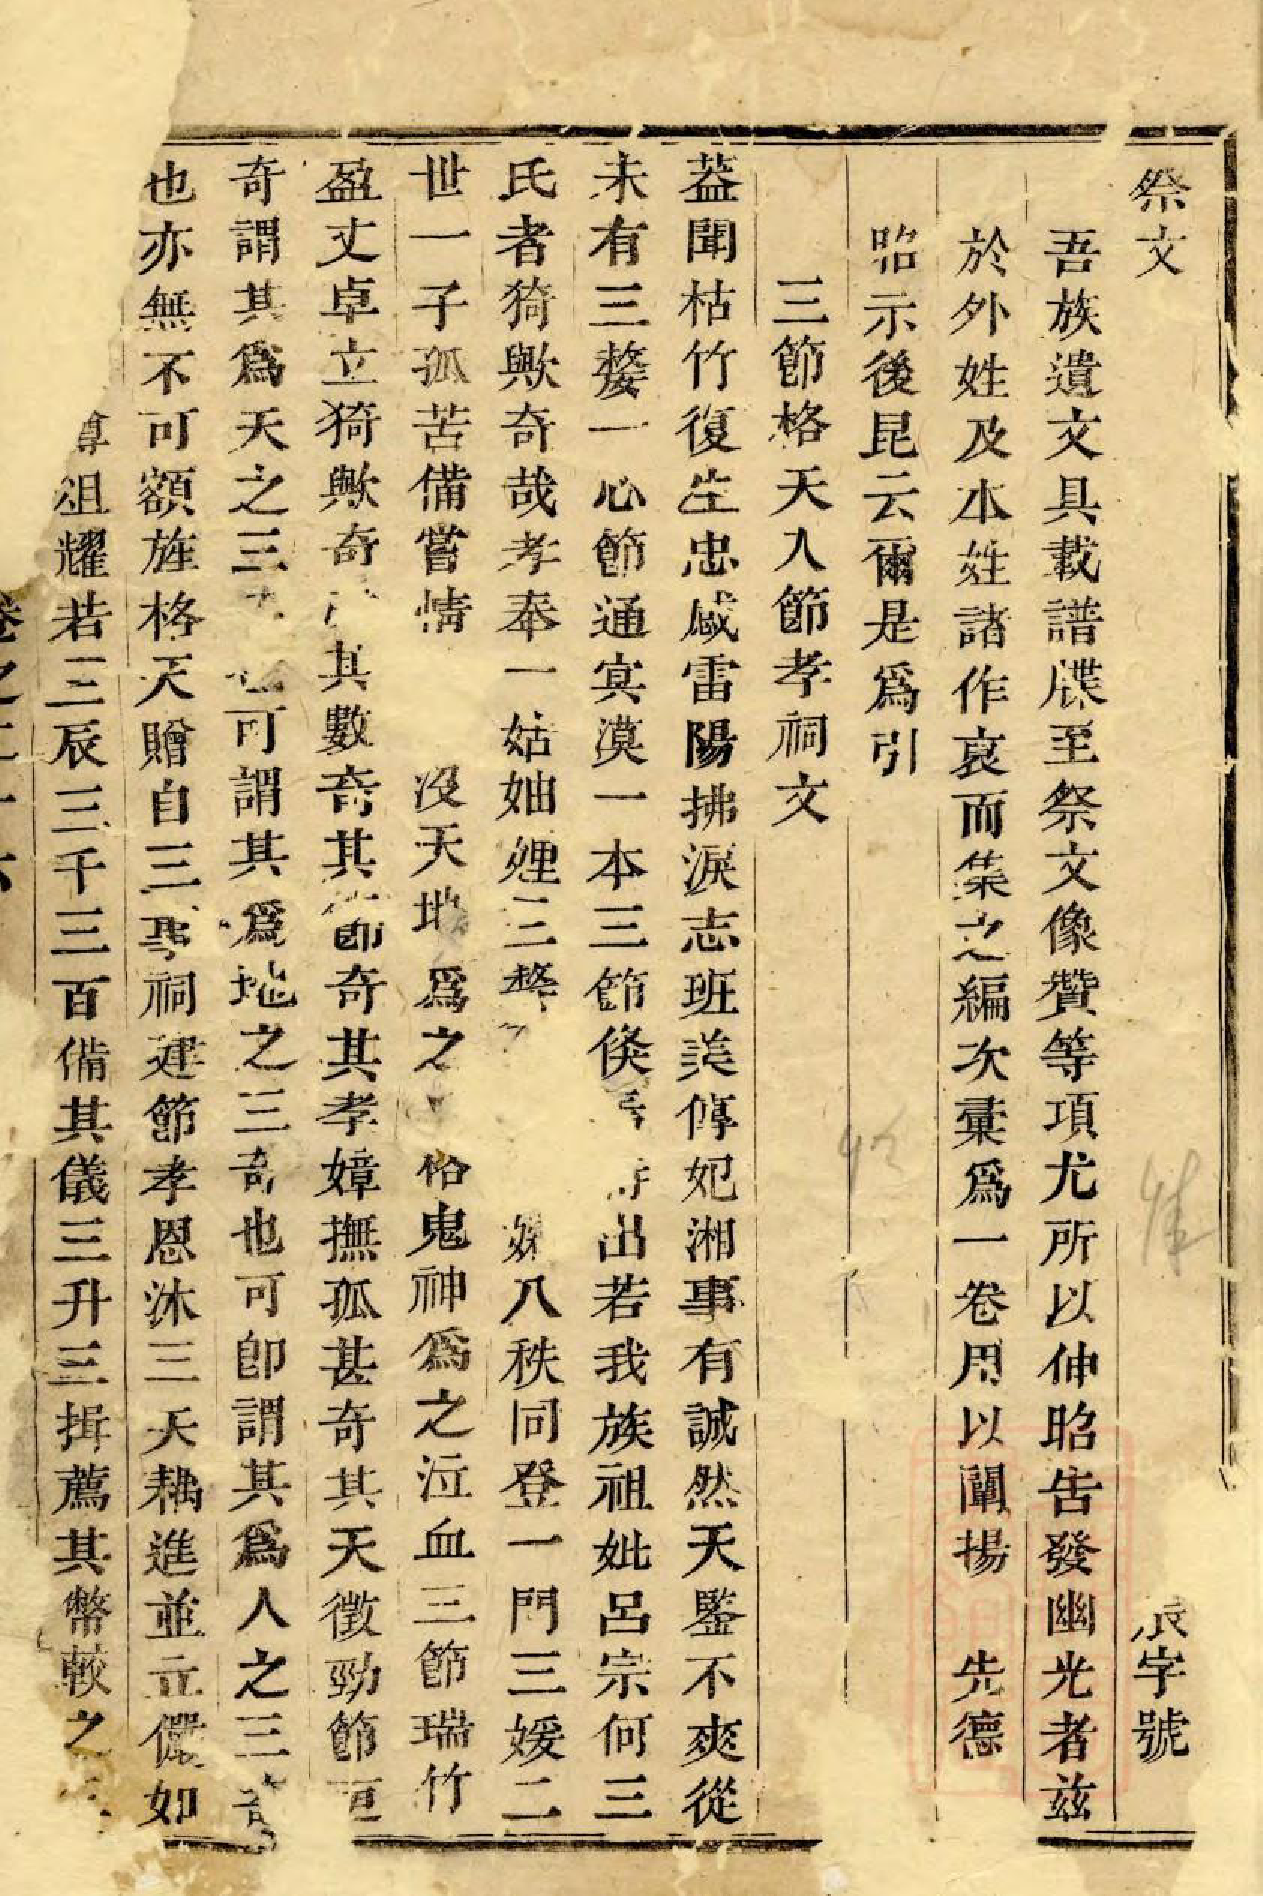 祭文 辰字號
吾族遺文具載譜牒至祭文像贊等項尤所以伸昭告發幽光者兹
於外姓及本姓諸作哀而集之編次彙爲一卷用以闡揚 先德
昭示後昆云爾是爲引
三節格天人節孝祠文
葢聞枯竹復生忠感雷陽拂淚志班美傳妃湘事有誠然天鑒不爽從
未有三嫠一心節通寘漠一本三節倏 出若我族祖妣呂宗何三
氏者猗歟奇哉孝奉一姑妯娌三嫠 八秩同登一門三媛二
世一子孤苦備嘗情 沒天地爲之 格鬼神爲之泣血三節瑞竹
盈丈卓立猗歟奇 其數奇其節奇其孝嫜撫孤甚奇其天徵勁節
奇謂其爲天之三 也可謂其爲地之三奇也可卽謂其爲人之三奇
也亦無不可額旌格天贈自三 祠建節孝恩沐三天耦進並立儼如
俎耀若三辰三千三百備其儀三升三揖薦其幣較之
卷之二十六